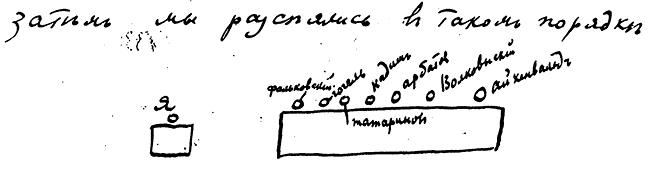 затѣмъ мы разсѣлись въ такомъ порядкѣ
Я
фальковскій гогель кадишъ арбатов Волковыскій айхенвальдъ
татариновъ